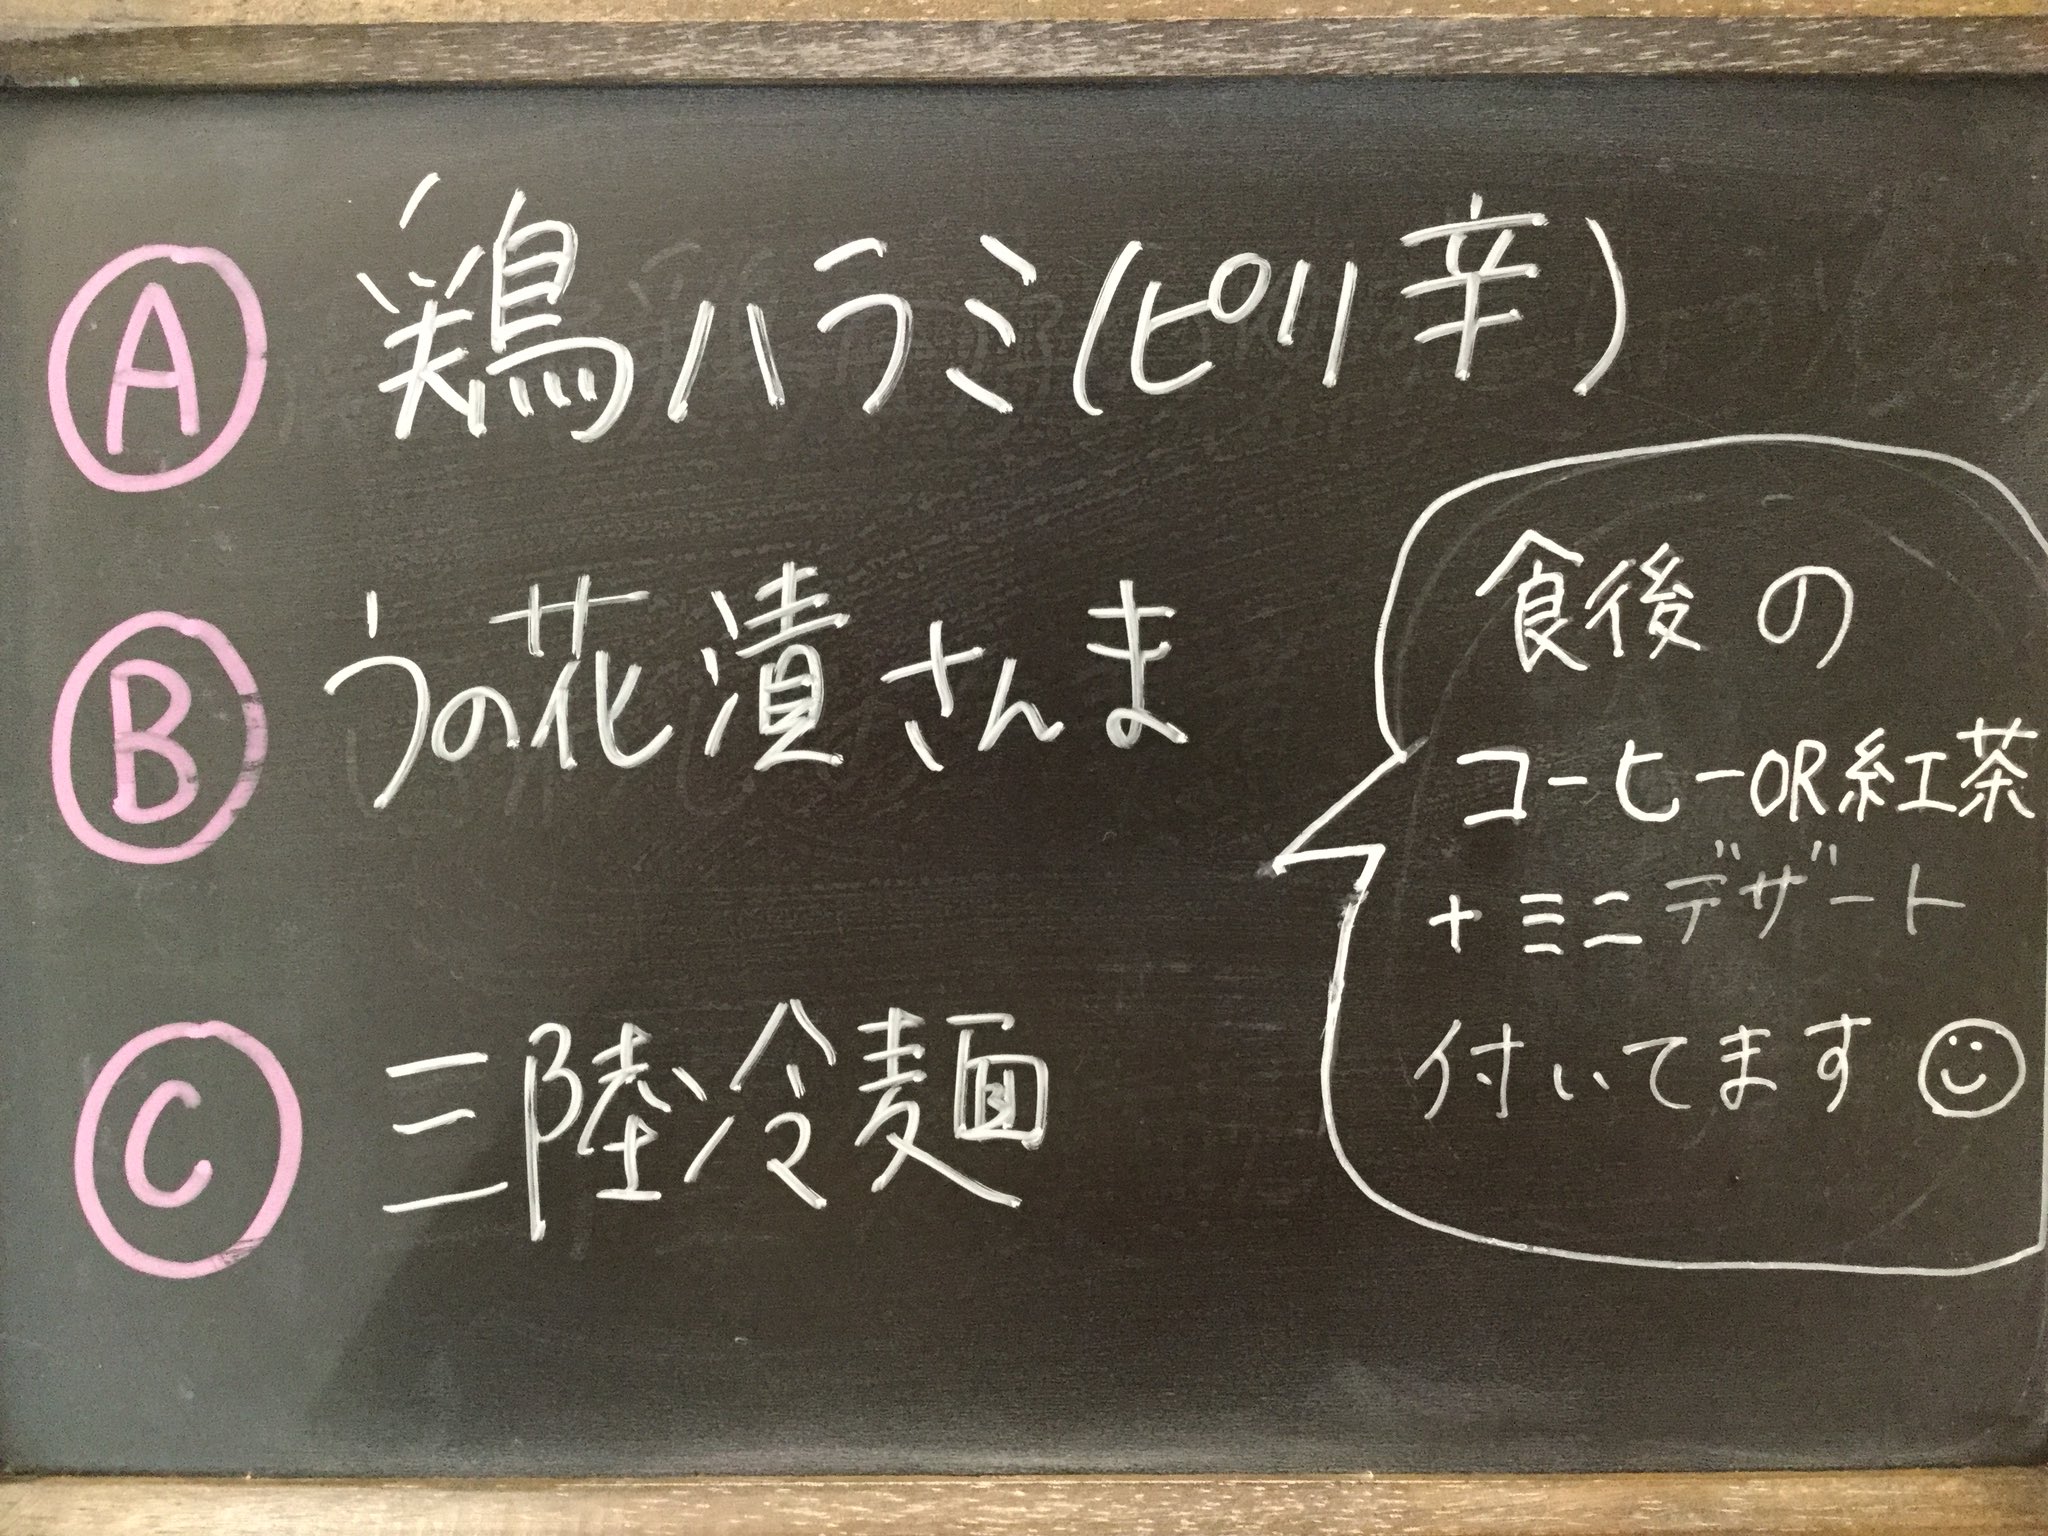 Ⓐ 鶏ハラミ(ピリ辛)
Ⓑ うの花漬さんま
Ⓒ 三陸冷麺
食後の
コーヒーOR紅茶
+ミニデザート
付いてます